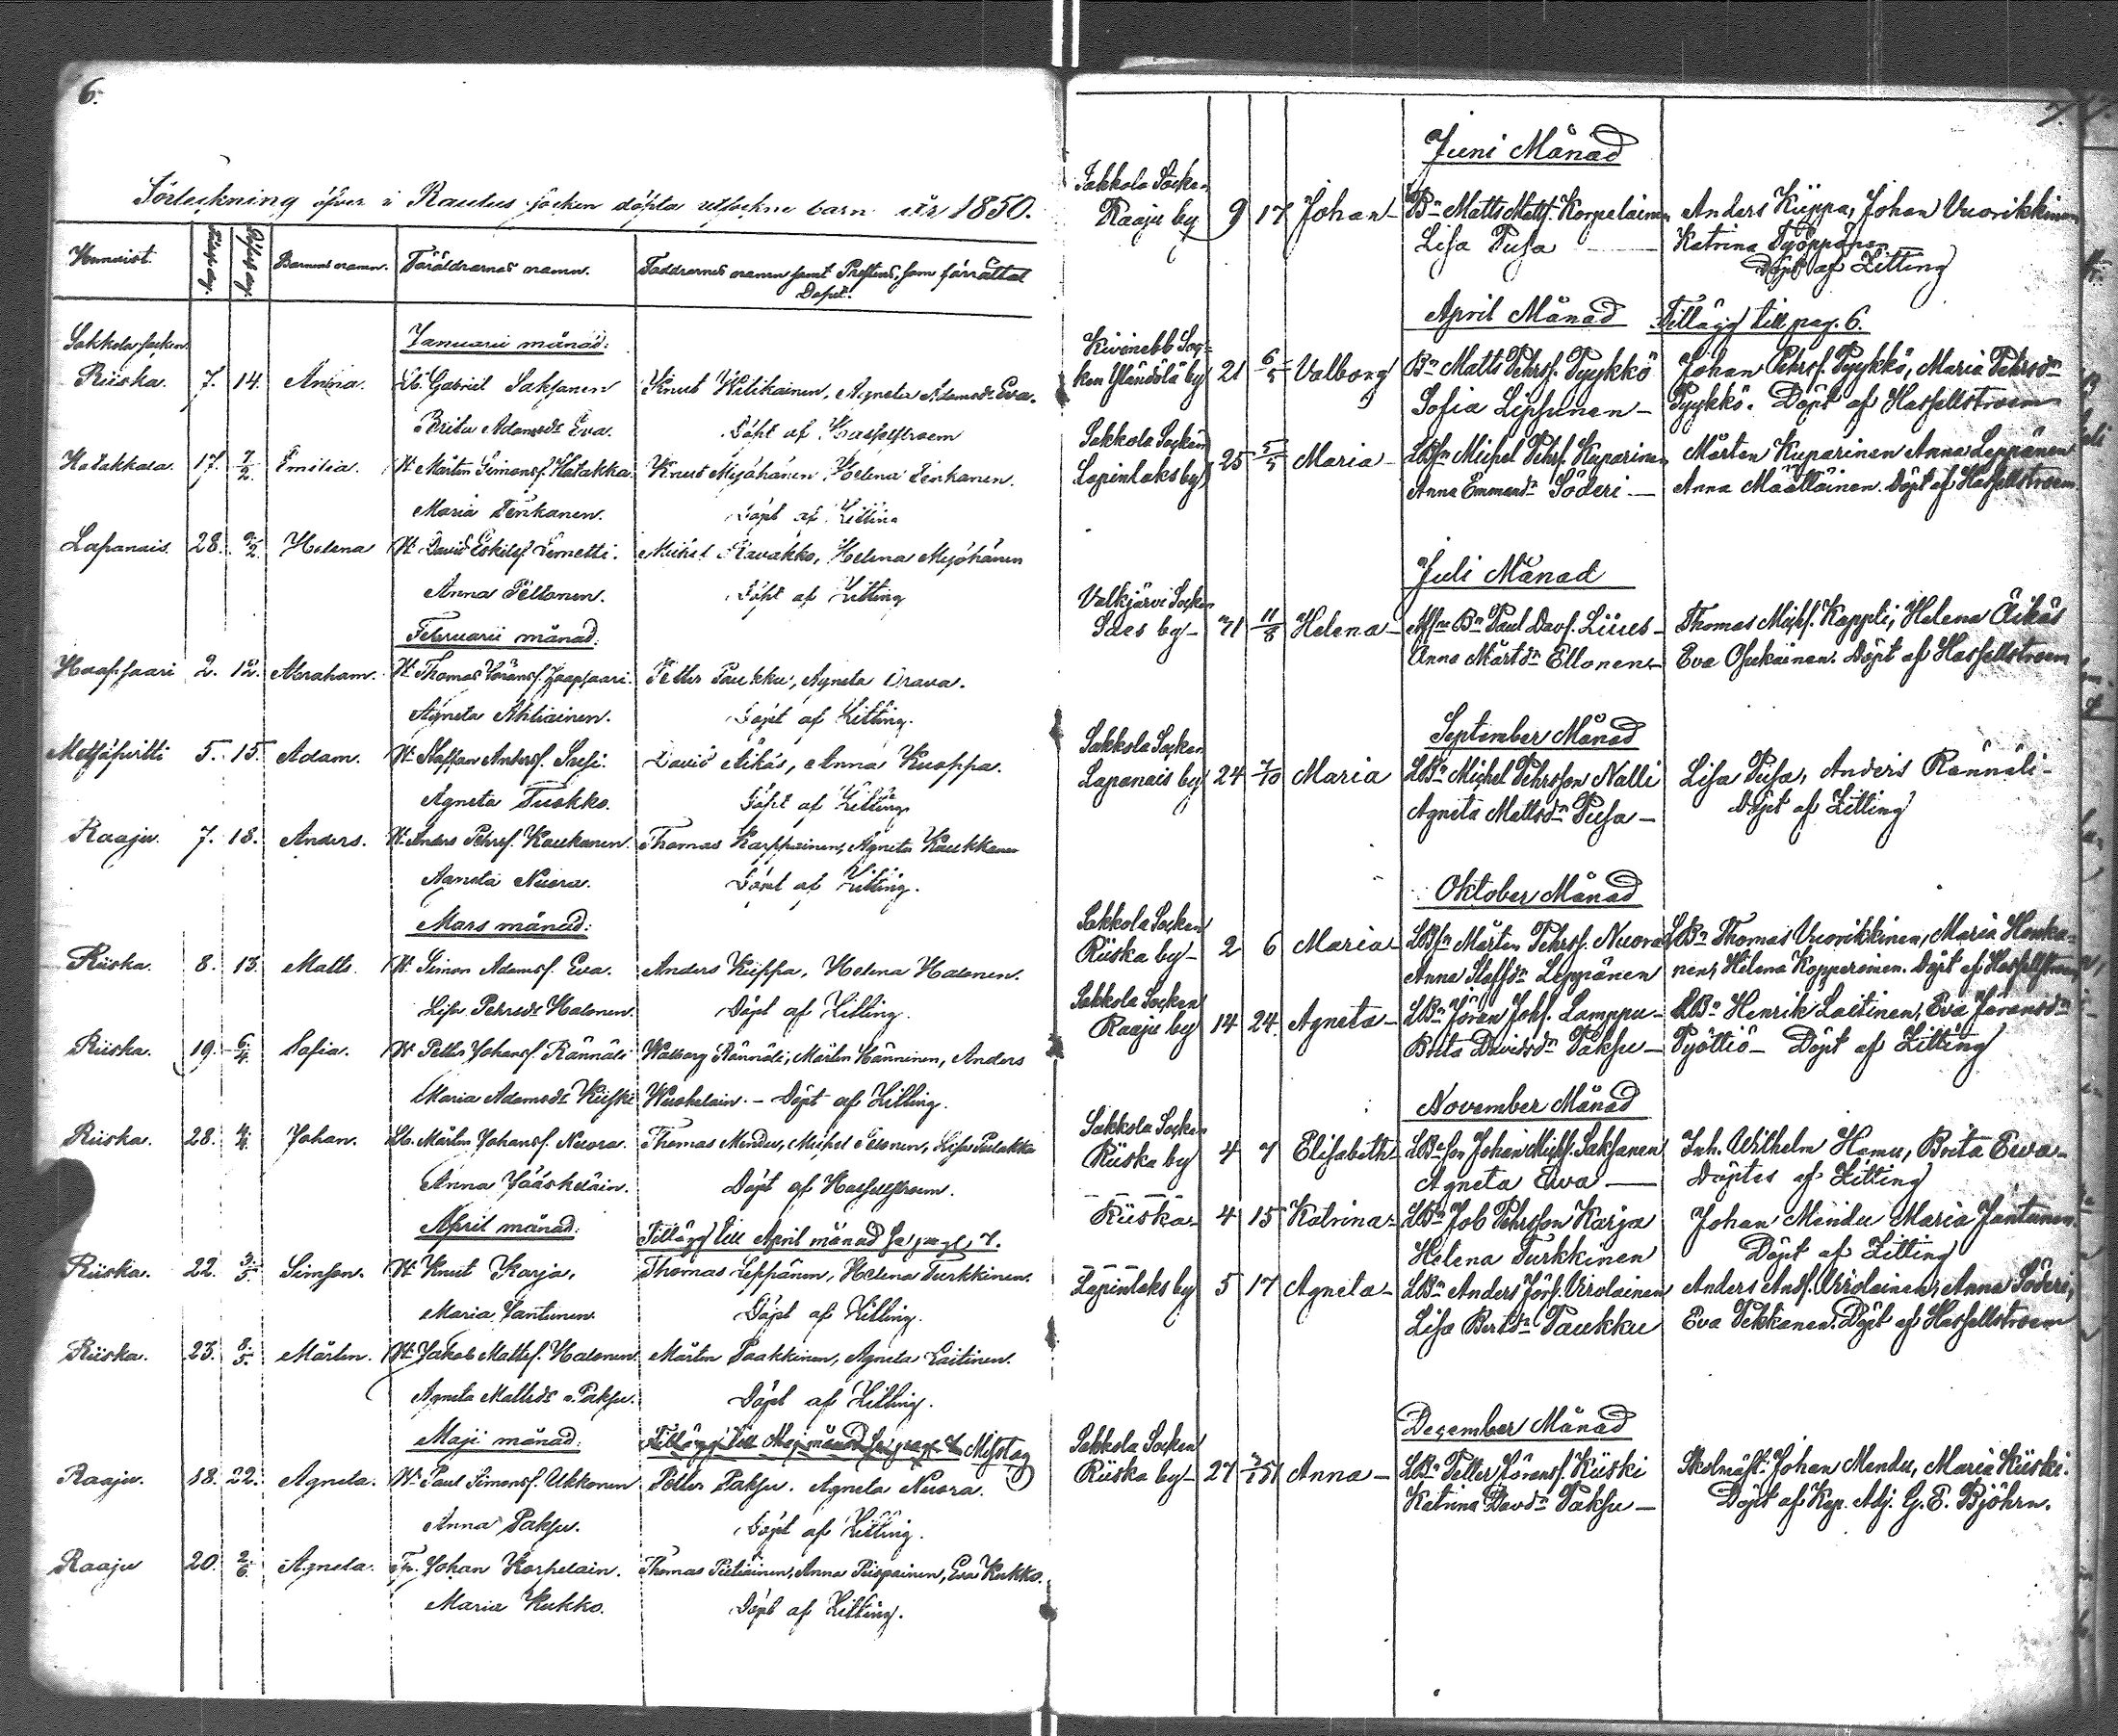 6.
Förteckning öfver i Rautus socken döpta utsockne barn år 1850.
Hemvist. Födelse dag. Döpelse dag. Barnens namn. Föräldrarnes namn. Faddrarnes namn samt Prestens, som förrättat
Dopet.
Sakkola socken. Januarii månad:
Riiska. 7. 14. Anna. Lb. Gabriel Saksanen Knut Wilikainen, Agneta Adamsdr Eva.
Brita Adamsdr Eva. Döpt af Hasselstroem
Hatakkala. 17. 7/2. Emilia. Mårten Simonsf. Hatakka Knut Myöhänen, Helena Tenkanen.
Maria Tenkanen. Döpt af Zitting
Lapanais. 28. 9/2. Helena David Eskilsf. Lemetti. Michel Ravakko, Helena Myöhänen
Anna Peltonen. Döpt af Zitting
Februarii månad:
Haapsaari 2. 12. Abraham. Thomas Göransf. Haapsaari. Petter Paukku, Agneta Orava.
Agneta Ahtiainen. Döpt af Zitting.
Metsäpirtti 5. 15. Adam. Staffan Andersf. Daavid Äikäs, Anna Kuoppa.
Agneta Tuokko. Döpt af Zitting
Raaju. 7. 18. Anders. Anders Pehrsf. Kaukanen. Thomas Karppainen, Agneta Kaukkanen
Agneta Nuora. Döpt af Zitting.
Mars månad:
Riiska. 8. 13. Matts. Simon Adamsf. Eva. Anders Kiippa, Helena Halonen.
Lisa Pehrsdr Halonen. Döpt af Zitting.
Riiska. 19. 6/4. Sofia. Petter Johansf. Rännäli Walborg Rännäli, Mårten Hänninen, Anders
Maria Adamsdr Kiiski - Döpt af Zitting.
Riiska. 28. 4/4. Johan. Lb. Mårten Johansf. Nuora. Thomas Mendu, Michel Ilvonen, Lisa Pulakka
Anna Jääskeläin. Döpt af Hasselstroem.
April månad: Tillägg till April månad se pag. 7.
Riiska. 22. 3/5. Simson. Knut Karja, Thomas Leppänen, Helena Turkkinen.
Maria Jantunen. Döpt af Zitting.
Riiska. 23. 8/5. Mårten. Jakob Mattsf. Halonen. Mårten Paakkinen, Agneta Laitinen.
Agneta Mattsdr Paksu. Döpt af Zitting.
Maji månad: Tillägg till Maj månad se pag. 7 Misstag
Raaju. 18. 22. Agneta. Paul Simonsf. Ukkonen Petter Paksu. Agneta Nuora.
Anna Paksu. Döpt af Zitting.
Raaju 20. 2/6. Agneta. Johan Korpelain. Thomas Pietiäinen, Anna Piispainen, Eva Kukko.
Maria Kukko. Döpt af Zitting.
7.
Juni Månad
Sakkola Socken
Raaju by 9 17 Johan Bn Matts Mattsf. Korpelainen Anders Kiippa, Johan Vuorikkinen
Lisa Pusa Katrina Työppönen
Döpt af Zitting
April Månad Tillägg till pag. 6.
Kivinebb Soc-
ken Yländölä by 21 6/5 Valborg Bn Matts Pehrsf. Pyykkö Johan Pehrsf. Pyykkö, Maria Pehrsdr
Sofia Lipsunen Pyykkö. Döpt af Hasselstroem
Sakkola Socken
Lapinlaks by 25 5/5 Maria LBsn Michel Pehrsf. Kuparinen Mårten Kuparinen Anna Leppänen
Anna Emmandr Söderi Anna Määttäinen. Döpt af Hasselstroem
Juli Månad
Valkjärvi Socken
by 31 11/8 Helena Bn Paul Davsf. Liius Thomas Michsf. Kappli, Helena Äikäs
Anna Mårtsdr Ellonen Eva Ohukainen. Döpt af Hasselstroem
September Månad
Sakkola Socken
Lapanais by 24 7/10 Maria LBn Michel Pehrsson Nalli Lisa Pusa, Anders Rännäli
Agneta Mattsdr Pusa Döpt af Zitting
Oktober Månad
Sakkola Socken
Riiska by 2 6 Maria LBsn Mårten Pehrsf. Nuora LBn Thomas Vuorikkinen, Maria Honka-
Anna Staffsdr Leppänen nen, Helena Kopperoinen. Döpt af Hasselstroem
Sakkola Socken
Raaju by 14 24 Agneta LBn Jöran Johsf. Lamppu LBn Henrik Laitinen, Eva Jöransdr
Brita Davidsdr Paksu Pyöttiö Döpt af Zitting
November Månad
Sakkola Socken
Riiska by 4 7 Elisabeth LBn son Johan Michsf. Saksanen Inh. Wilhelm Hämu, Brita Ewa
Agneta Ewa Döptes af Zitting
Riiska 4 15 Katrina LBn Job Pehrsson Karja Johan Mendu Maria Jäntunen
Helena Turkkinen Döpt af Zitting
Lapinlaks by 5 17 Agneta LBn Anders Jörsf. Virolainen Anders Andsf. Virolainen, Anna Söderi,
Lisa Bertsdr Paukku Eva Pekkanen. Döpt af Hasselstroem
December Månad
Sakkola Socken
Riiska by 27 Anna LBn Petter Göransf. Kiiski Skolmäst. Johan Mendu, Maria Kiiski.
Katrina Davdr Paksu Döpt af Kap. Adj. G. E. Björhn.